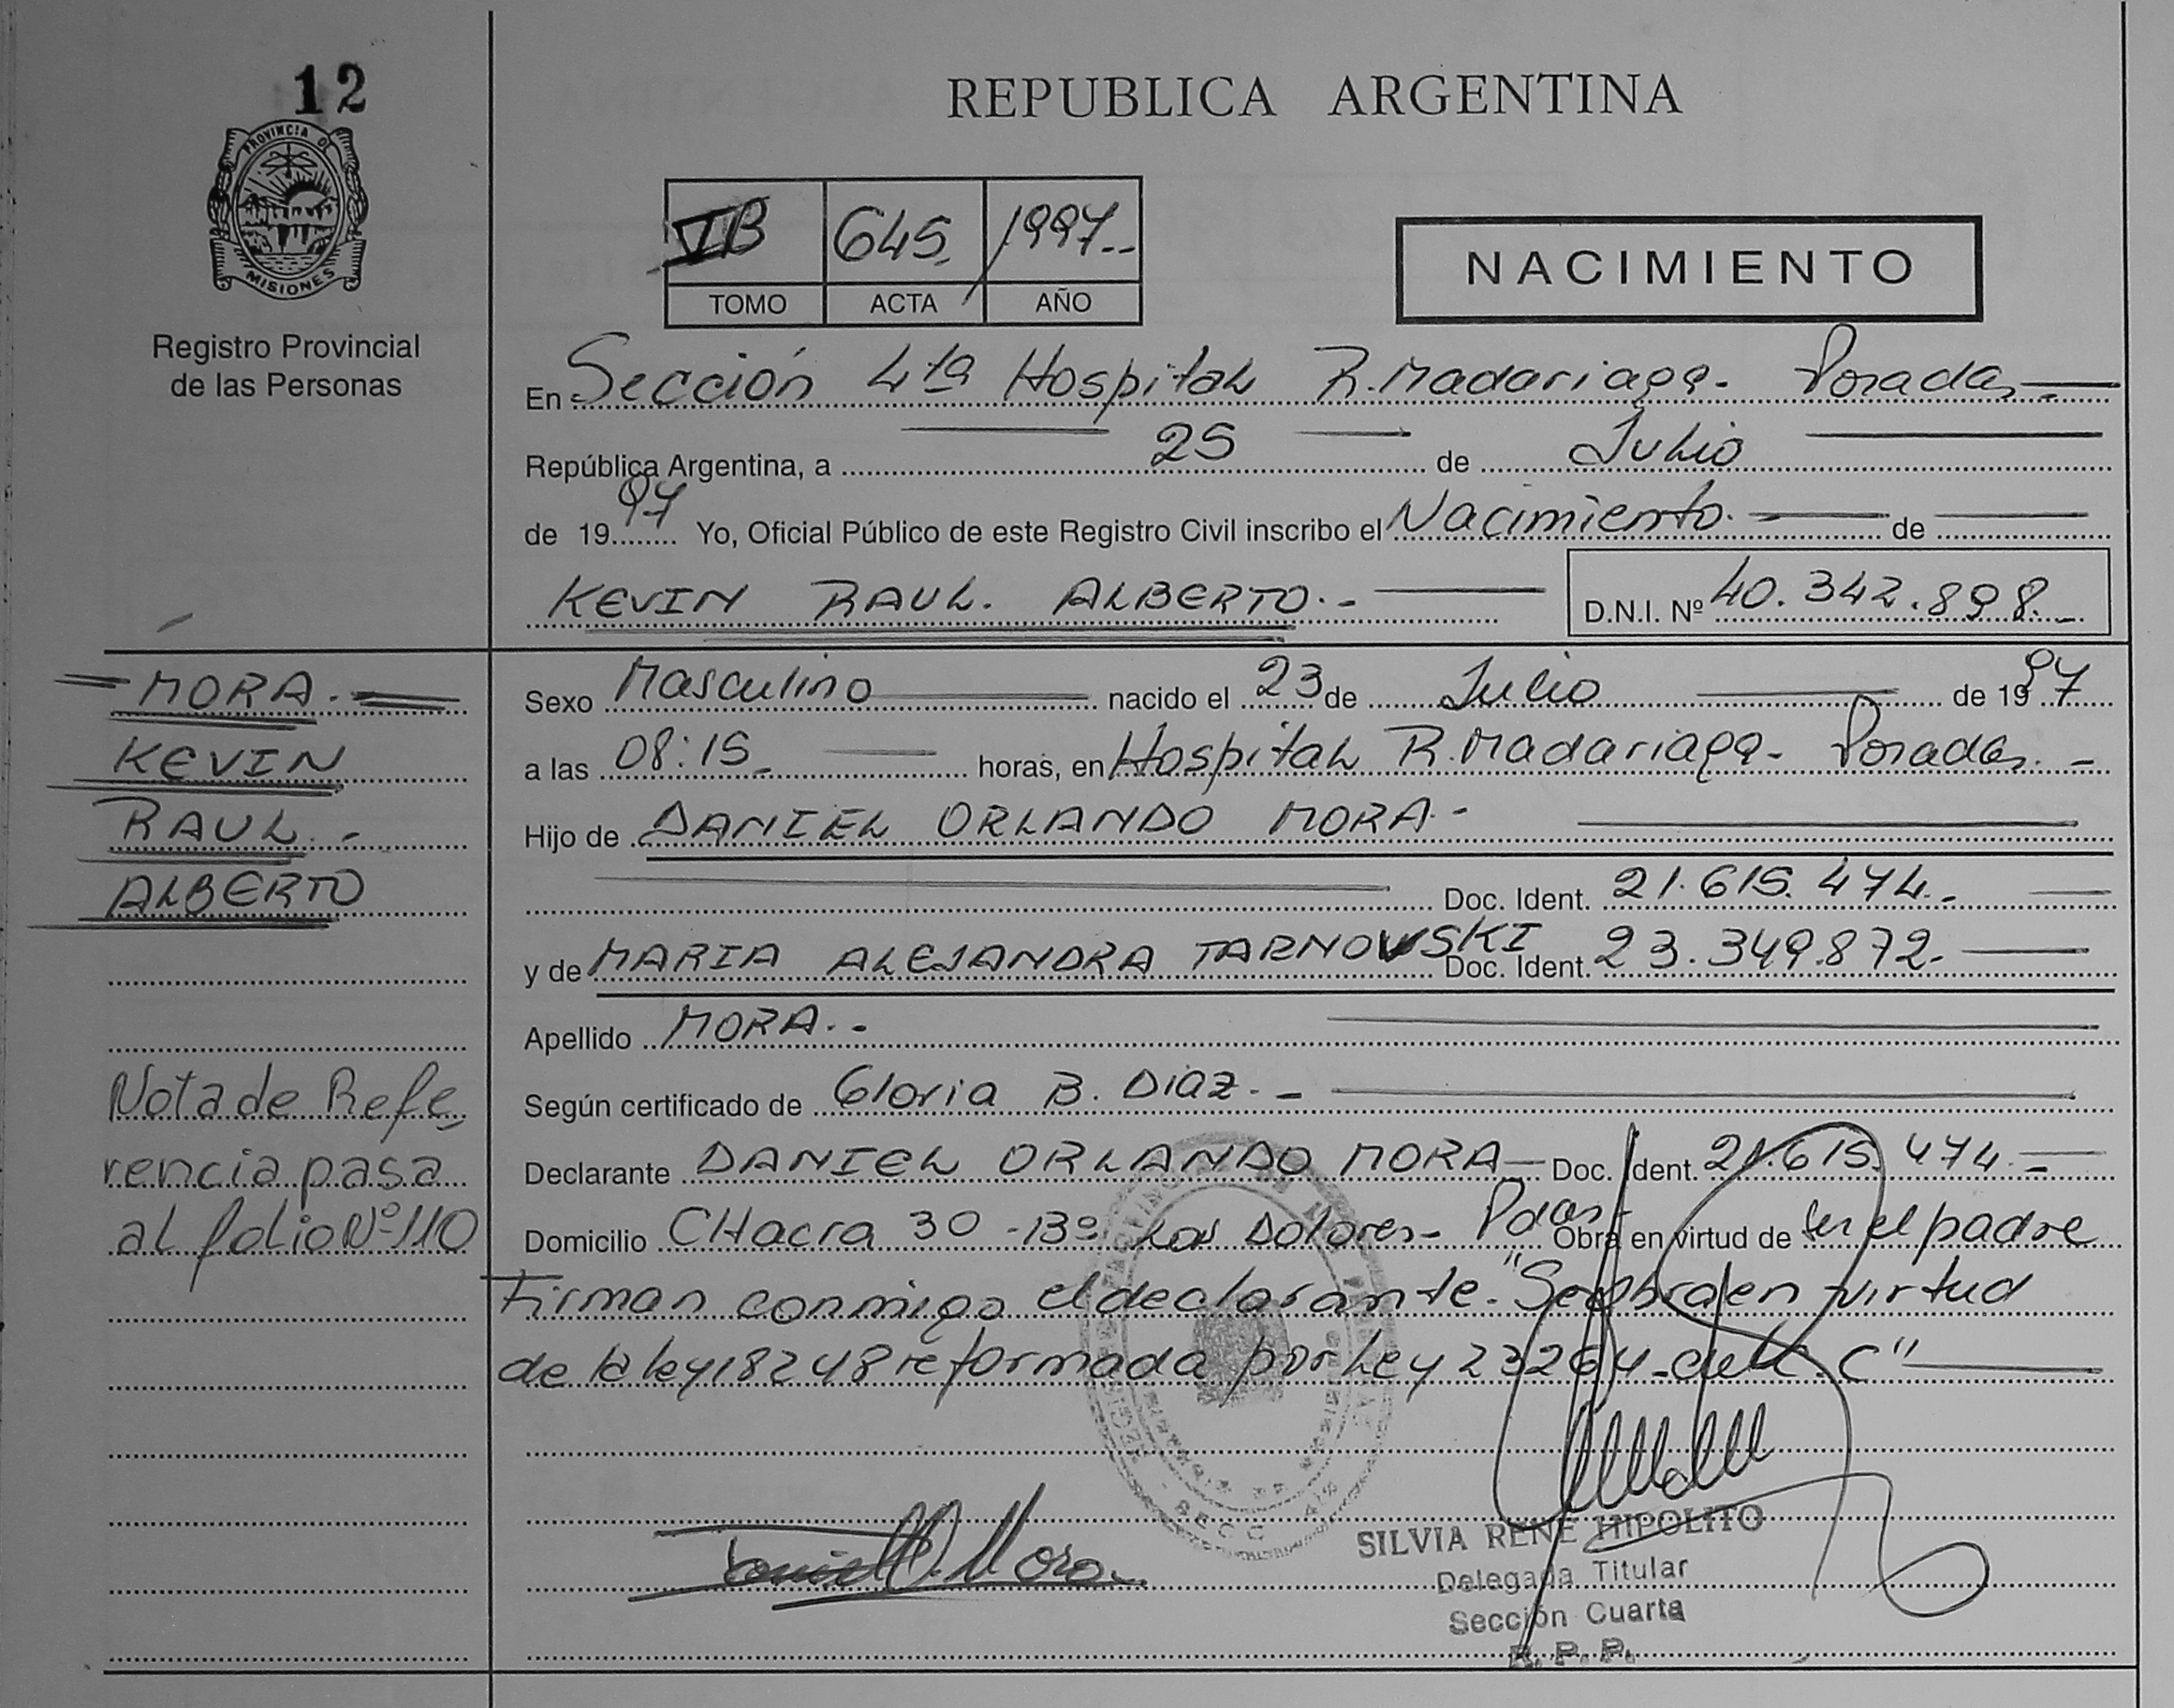 12
REPUBLICA ARGENTINA
PROVINCIA DE
MISIONES
Registro Provincial
de las Personas
VB 645 1997.-
TOMO ACTA AÑO
NACIMIENTO
En Sección 4ta Hospital R. Madariaga. Posadas
República Argentina, a 25 de Julio
de 1997 Yo, Oficial Público de este Registro Civil inscribo el Nacimiento. de
KEVIN RAUL. ALBERTO.-
D.N.I. Nº 40.342.898.-
MORA.
KEVIN
RAUL.-
ALBERTO
Sexo Masculino nacido el 23 de Julio de 1997
a las 08:15 horas, en Hospital R. Madariaga- Posadas.-
Hijo de DANIEL ORLANDO MORA.-
Doc. Ident. 21.615.474.-
y de MARIA ALEJANDRA TARNOWSKI Doc. Ident. 23.349.872.
Apellido MORA.-
Según certificado de Gloria B. Diaz.-
Declarante DANIEL ORLANDO MORA Doc. Ident. 21.615.474.-
Domicilio CHacra 30 -Bº Los Dolores- Pdas. Obra en virtud de ser el padre
Firman conmigo el declarante. "Se obra en virtud
de la ley 18248 reformada por Ley 23264 del C. C"
Nota de Refe
rencia pasa
al folio Nº 110
Daniel O. Mora
SILVIA RENE HIPOLITO
Delegada Titular
Sección Cuarta
R. P. P.